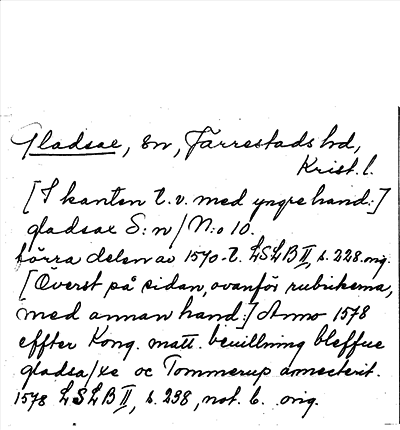 Gladsae, sn, Järrestads hd,
Krist. l.
[I kanten t. v. med yngre hand:]
gladsax S:n/N:o 10.
förra delen av 1570-t. LSLB II, s. 228. orig.
[Överst på sidan, ovanför rubrikerna,
med annan hand:] Anno 1578
effter Kong. matt. beuillning bleffue
gladsa/xe oc Tommerup annecterit.
1578 LSLB II, s. 238, not. b. orig.